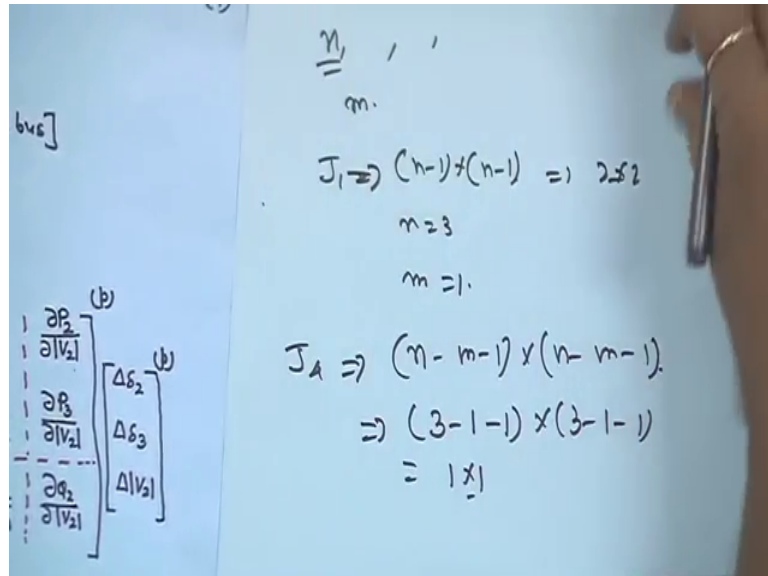 bus]
∂P₂ / ∂|V₂|
∂P₃ / ∂|V₂|
∂Q₂ / ∂|V₂|
(p)
Δδ₂
Δδ₃
Δ|V₂|
(p)
n, , ,
m.
J₁ => (n-1)×(n-1) => 2×2
n=3
m=1.
J₄ => (n-m-1)×(n-m-1).
=> (3-1-1)×(3-1-1)
= 1×1